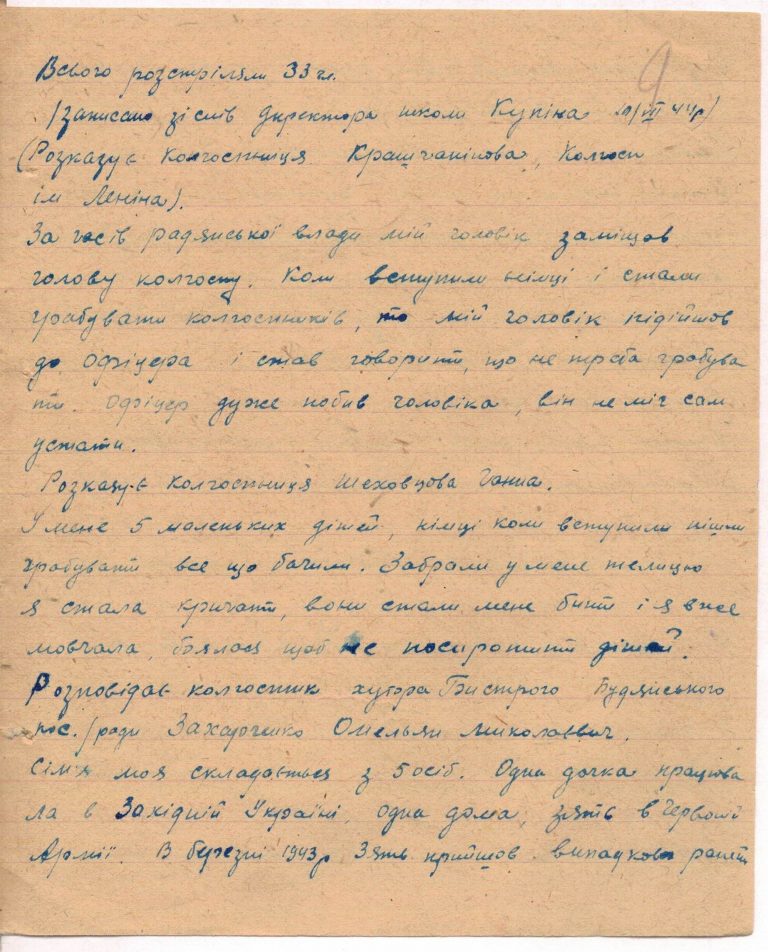 9
Всього розстріляли 33 чл.
/записано зі слів директора школи Кукіна VII 44р/
(Розказує колгоспниця Крашчанінова, Колгосп
ім Леніна).
За часів радянської влади мій чоловік заміщав
голову колгоспу. Коли вступили німці і стали
грабувати колгоспників, то мій чоловік підійшов
до офіцера і став говорити, що не треба грабува
ти. Офіцер дуже побив чоловіка, він не міг сам
устати.
Розказує колгоспниця Шеховцова Ганна.
У мене 5 маленьких дітей, німці коли вступили пішли
грабувати все що бачили. Забрали у мене телицю
я стала кричати, вони стали мене бити і я вже
мовчала, боялася щоб не посиротити дітей.
Розповідає колгоспник хутора Бистрого Будянського
пос./ради Захарченко Омельян Миколаєвич.
Сім'я моя складається з 5 осіб. Одна дочка працюва
ла в Західній Україні, одна дома, зять в Червоній
Армії. В березні 1943р зять прийшов випадково